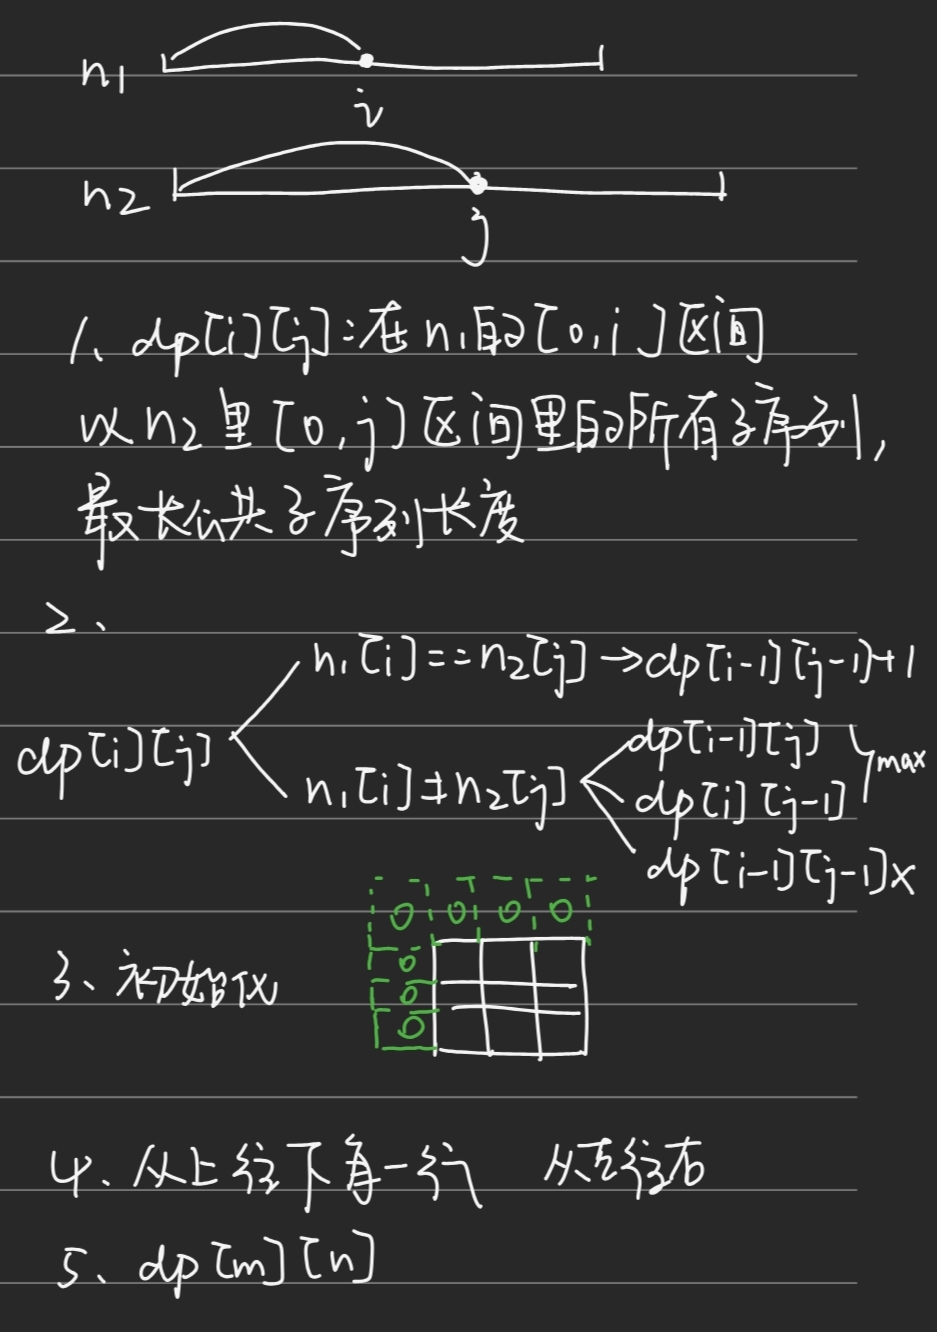 n1
i
n2
j
1、dp[i][j]:在n1的[0,i]区间
以n2里[0,j]区间里的所有子序列,
最长公共子序列长度
2、
n1[i]==n2[j]→dp[i-1][j-1]+1
dp[i][j]
n1[i]≠n2[j]
dp[i-1][j]
dp[i][j-1]
max
dp[i-1][j-1]x
0 0 0 0
0
0
0
3、初始化
4、从上往下每一行 从左往右
5、dp[m][n]